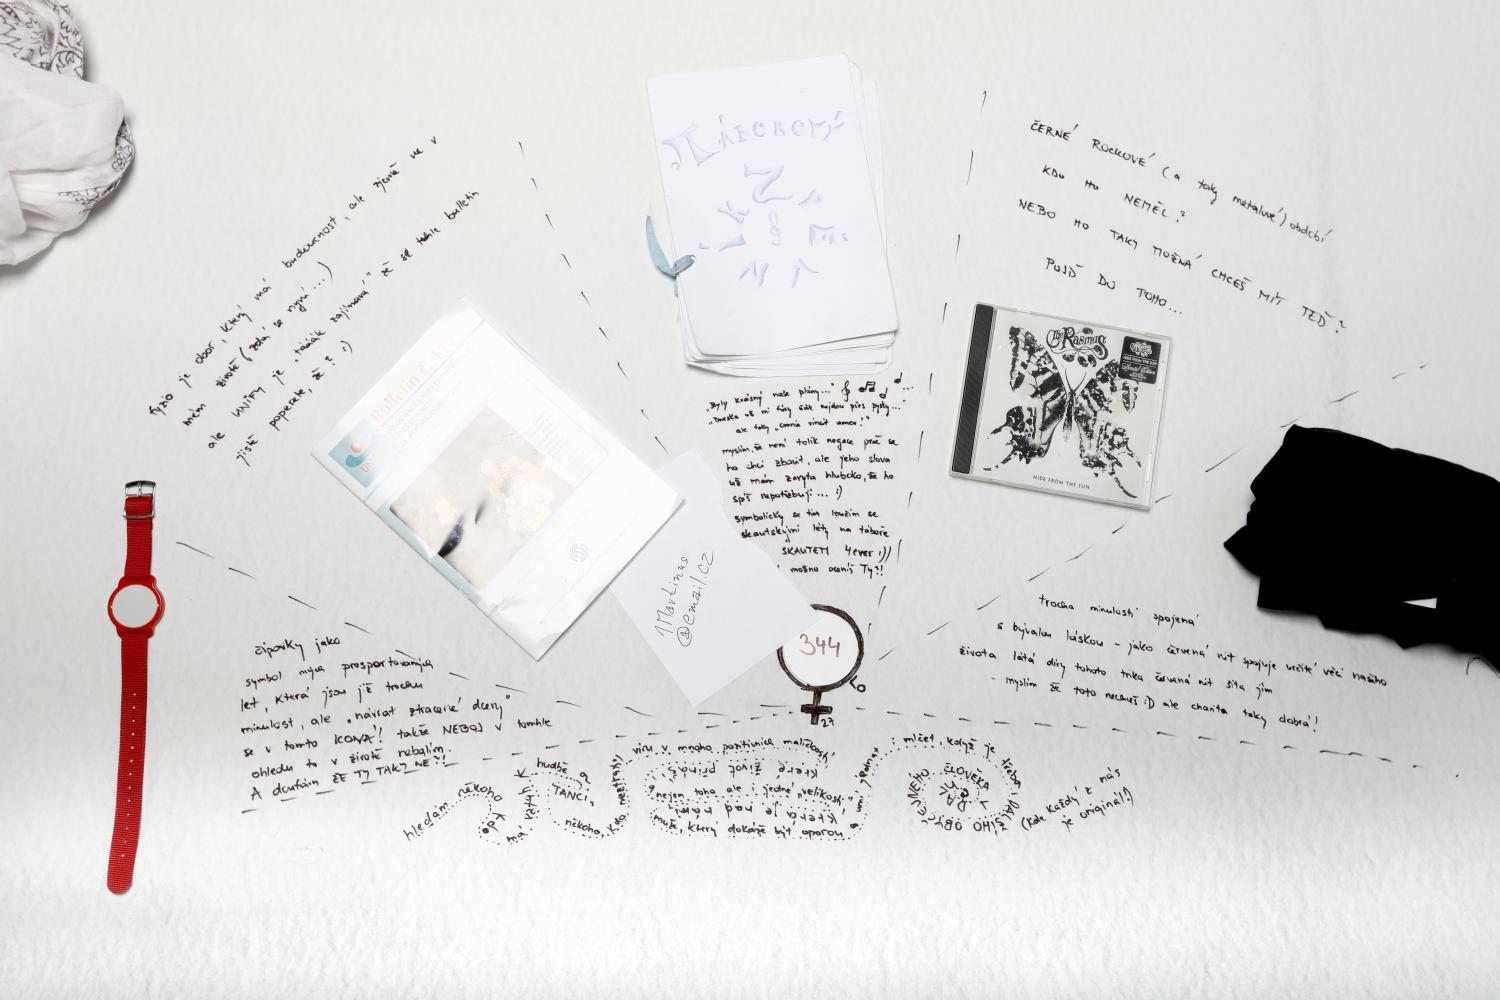 fyzio je obor, který má budoucnost, ale zjevně ne v
mém životě (zdá se nyní...)
ale UNIFY je „taaak zajímavá" že se tenhle bulletin
jistě poperete, že? :)
Bulletin
TÁBOROVÝ
Z
„Byly krásný naše plány..."
„Dneska už mi fóry ňák nejdou přes pysky..."
ale taky „omnia vincit amor!"
myslím, že není tolik negace proč se
ho chci zbavit, ale jeho slova
už mám zaryta hluboko, že ho
spíš nepotřebuji... :)
symbolicky se tím loučím se
skautskými léty na táboře
SKAUTETI 4ever :))
možno oceníš Ty?!
ČERNÉ ROCKOVÉ (a taky metalové) období
KDO HO NEMĚL?
NEBO HO TAKY MOŽNÁ CHCEŠ MÍT TEĎ?
POJĎ DO TOHO...
The Rasmus
HIDE FROM THE SUN
HIDE FROM THE SUN
1Martinus
@email.cz
344
27
trocha minulosti spojená
s bývalou láskou - jako červená nit spojuje určité věci našeho
života látá díry tohoto trika červená nit šitá jím
- myslím že toto nechceš :D ale charita taky dobrá!
čipovky jako
symbol mých prosportovaných
let, která jsou již trochu
minulost, ale „návrat ztracené dcery"
se v tomto KONÁ! takže NEBOJ v tomhle
ohledu to v životě nabalím.
A doufám ŽE TY TAKY NE?!
hledám někoho kdo má vztah k hudbě a TANCI,
někoho, kdo neztratil víru v mnoho pozitivních maličkostí,
které život přináší
nejen toho ale i jedné „velikosti"
která je nad námi
muž, který dokáže být oporou a umí jednat i mlčet, když je třeba, DALŠÍHO OBYČEJNÉHO ČLOVĚKA
(kde každý z nás
je originál!)